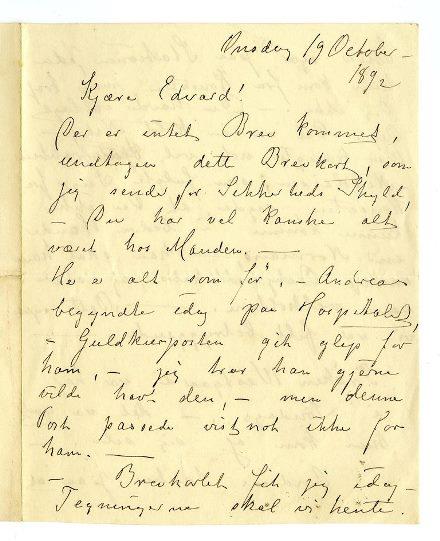 Onsdag 19 October –
1892
Kjære Edvard!
Der er intet Brev kommet,
undtagen dette Brevkort, som
jeg sender for Sikkerheds Skyld,
– Du har vel kanske alt
været hos Manden. –
Her er alt som før, – Andreas
begyndte idag paa Hospitalet,
– Guldkierposten gik glip for
ham, – jeg tror han gjerne
vilde havt den, – men denne
Post passede vistnok ikke for
ham. –
– Brevkortet fik jeg idag –
Tegningerne skal vi hente.